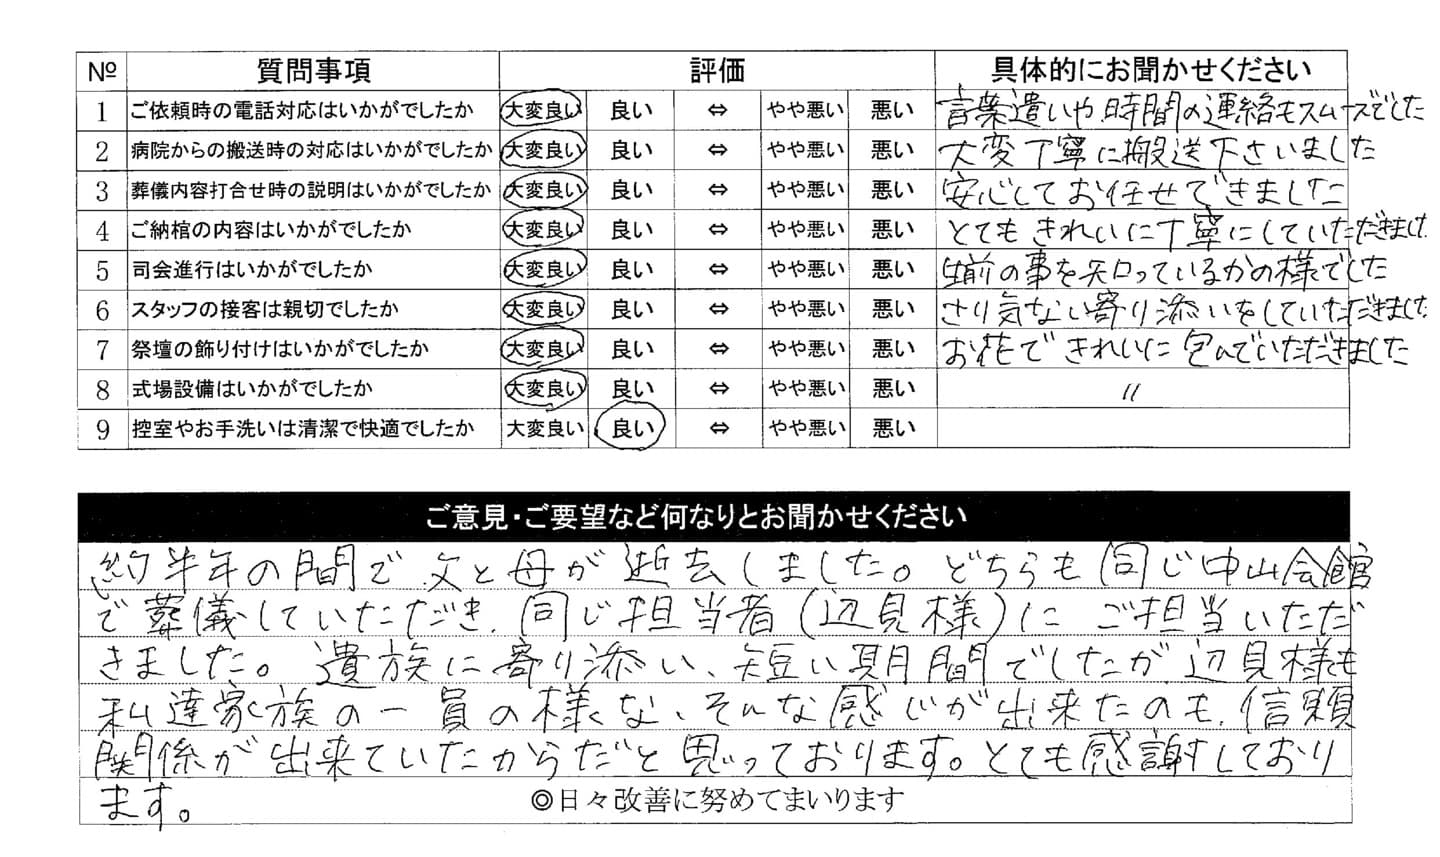 № 質問事項 評価 具体的にお聞かせください
1 ご依頼時の電話対応はいかがでしたか 大変良い 良い ⇔ やや悪い 悪い 言葉遣いや、時間の連絡もスムーズでした
2 病院からの搬送時の対応はいかがでしたか 大変良い 良い ⇔ やや悪い 悪い 大変丁寧に搬送下さいました
3 葬儀内容打合せ時の説明はいかがでしたか 大変良い 良い ⇔ やや悪い 悪い 安心してお任せできました
4 ご納棺の内容はいかがでしたか 大変良い 良い ⇔ やや悪い 悪い とてもきれいに丁寧にしていただきました
5 司会進行はいかがでしたか 大変良い 良い ⇔ やや悪い 悪い 生前の事を知っているかの様でした
6 スタッフの接客は親切でしたか 大変良い 良い ⇔ やや悪い 悪い さり気ない寄り添いをしていただきました
7 祭壇の飾り付けはいかがでしたか 大変良い 良い ⇔ やや悪い 悪い お花できれいに包んでいただきました
8 式場設備はいかがでしたか 大変良い 良い ⇔ やや悪い 悪い 〃
9 控室やお手洗いは清潔で快適でしたか 大変良い 良い ⇔ やや悪い 悪い
ご意見・ご要望など何なりとお聞かせください
約半年の間で父と母が逝去しました。どちらも同じ中山会館
で葬儀していただき、同じ担当者(辺見様)に ご担当いただ
きました。遺族に寄り添い、短い期間でしたが辺見様も
私達家族の一員の様な、そんな感じが出来たのも、信頼
関係が出来ていたからだと思っております。とても感謝しており
ます。
◎日々改善に努めてまいります